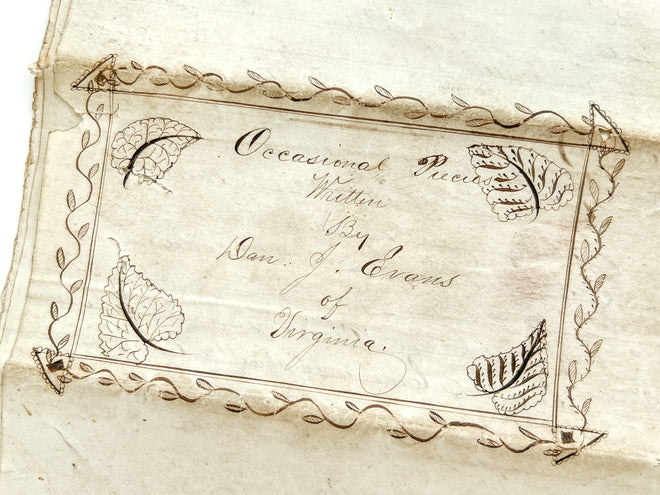 Occasional Pieces
Written
By
Dan. J. Evans
of
Virginia.